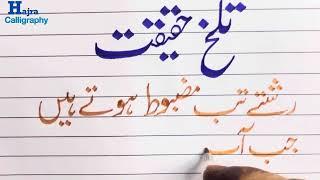 Hajra
Calligraphy
تلخ حقیقت
رشتے تب مضبوط ہوتے ہیں
جب آپ